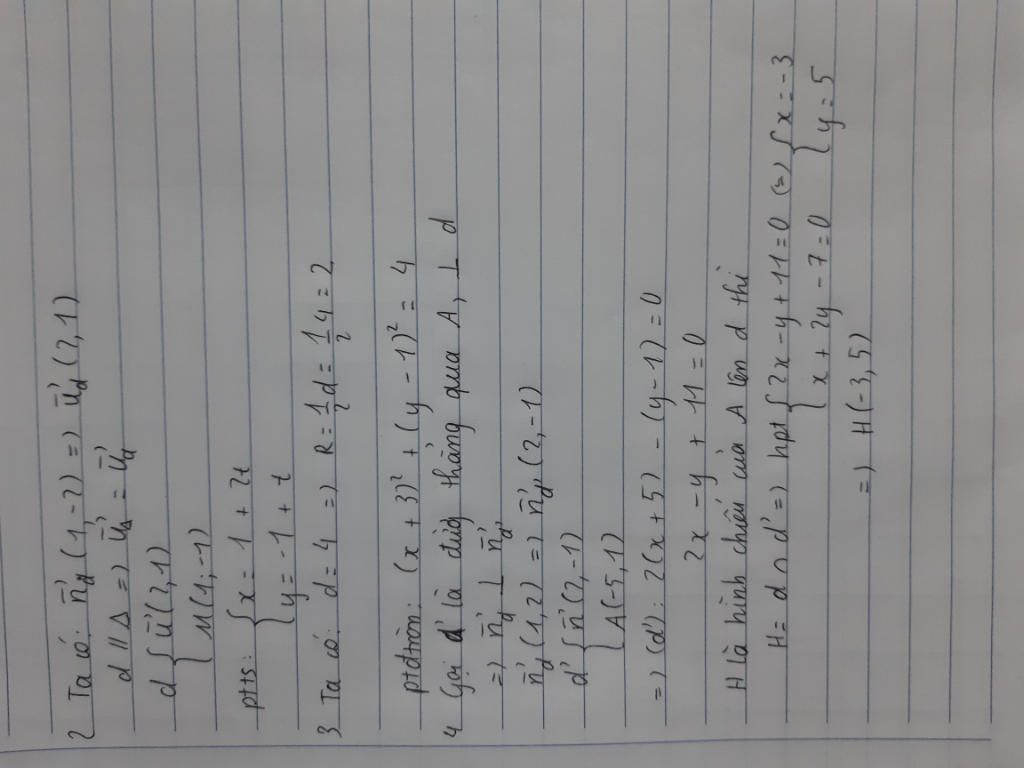 2 Ta có: n⃗_d (1,-2) => u⃗_d (2,1)
d // Δ => u⃗_Δ = u⃗_d
d { u⃗ (2,1)
M (1;-1)
ptts: { x = 1 + 2t
y = -1 + t
3 Ta có: d = 4 => R = 1/2 d = 1/2 4 = 2
ptđtròn: (x + 3)² + (y - 1)² = 4
4 Gọi d' là đừg thẳng qua A, ⊥ d
=> n⃗_d ⊥ n⃗_d'
n⃗_d (1,2) => n⃗_d' (2,-1)
d' { n⃗ (2,-1)
A (-5,1)
=> (d'): 2(x + 5) - (y - 1) = 0
2x - y + 11 = 0
H là hình chiếu của A lên d thì
H = d ∩ d' => hpt { 2x - y + 11 = 0 (=) { x = -3
x + 2y - 7 = 0 y = 5
=) H (-3,5)